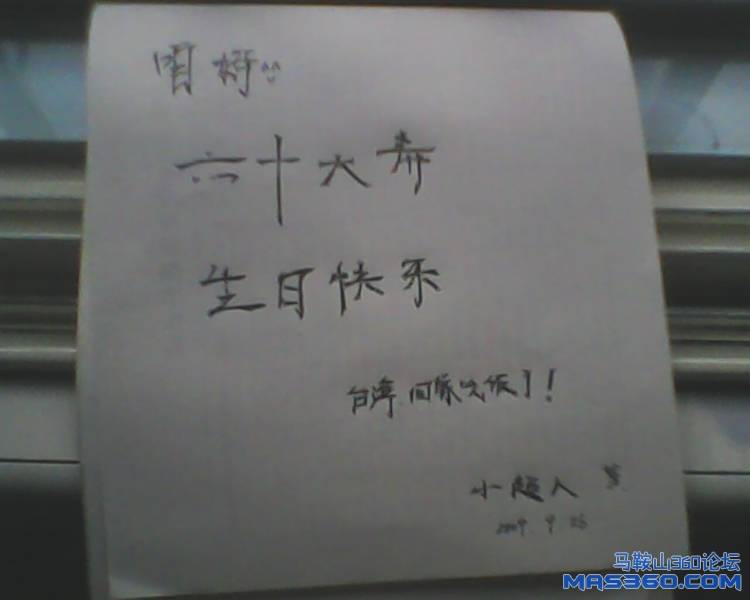 咱妈^^
六十大寿
生日快乐
台湾 回家吃饭了!
小超人
2009.9.26
马鞍山360论坛
MAS360.COM